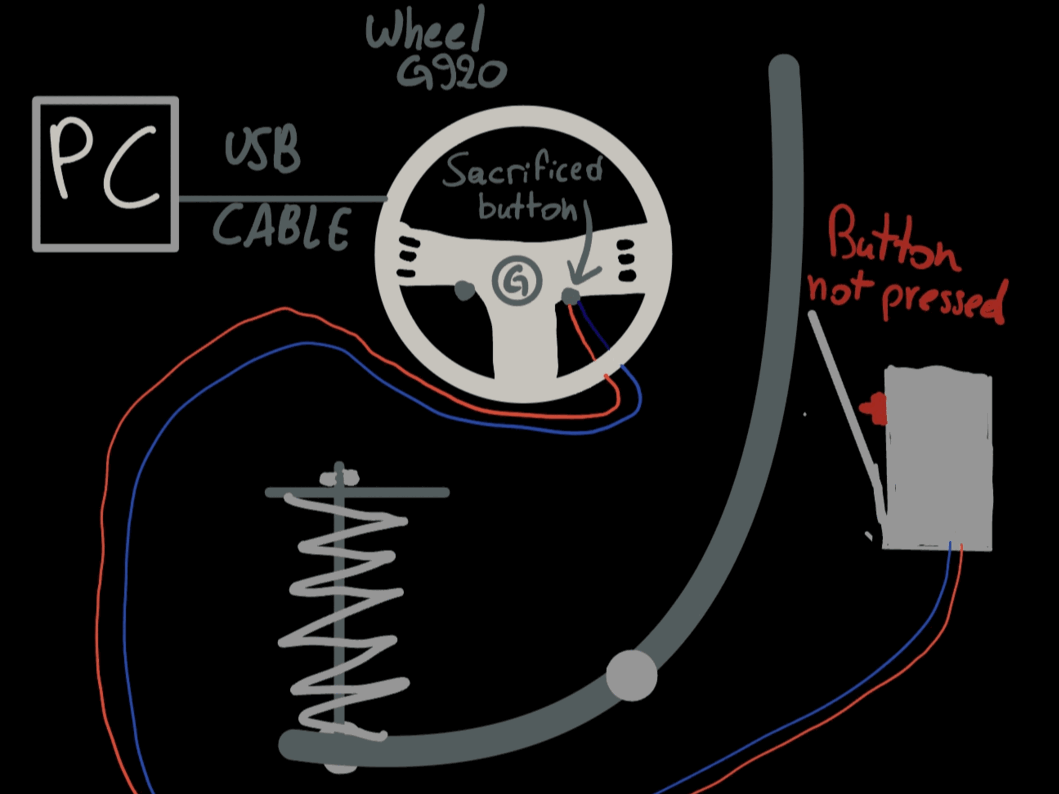 Wheel
G920
PC
USB
CABLE
Sacrificed
button
G
Button
not pressed